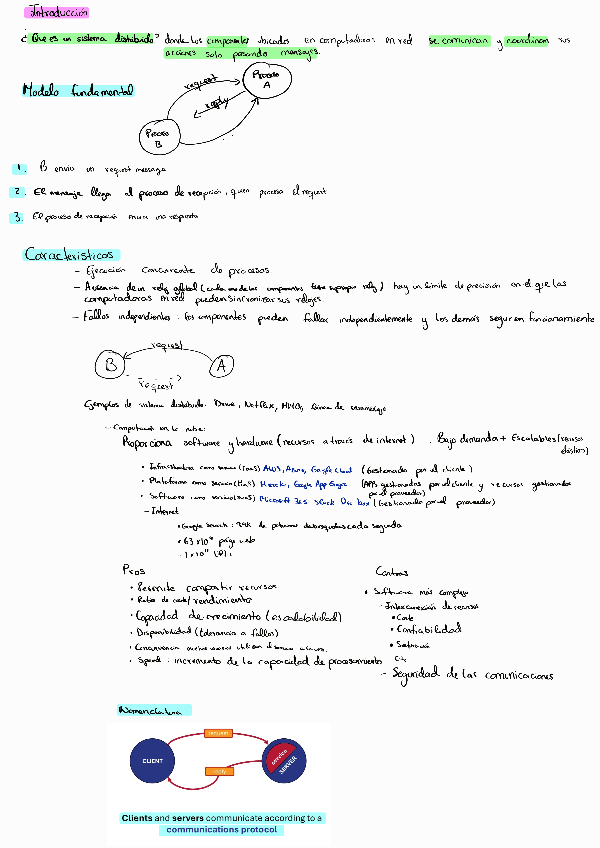 Introducción
¿Que es un sistema distribuido? donde los componentes ubicados en computadoras en red se comunican y coordinan sus
acciones solo pasando mensajes.
Modelo fundamental
request
Proceso
A
reply
Proceso
B
1. B envia un request message
2. El mensaje llega al proceso de recepción, quien procesa el request
3. El proceso de recepción envia una respuesta
Caracteristicas
- Ejecución concurrente de procesos
- Ausencia de un reloj global (cada uno de los componentes tiene su propio reloj) hay un límite de precisión en el que las
computadoras en red pueden sincronizar sus relojes.
- Fallos independientes: los componentes pueden fallar independientemente y los demás seguir en funcionamiento
request
B
A
request
Ejemplos de sistema distribuido: Drive, Netflix,
- Computación en la nube:
Proporciona software y hardware (recursos a través de internet). Bajo demanda + Escalables (recursos
• Infraestructura como servicio (IaaS) AWS, Azure, Google Cloud (Gestionado por el cliente)
• Plataforma como servicio (PaaS) Heroku, Google App Engine (APPS gestionadas por el cliente y recursos gestionados
por el proveedor)
• Software como servicio (SaaS) Microsoft 365 Slack Dropbox (Gestionado por el proveedor)
- Internet
• Google Search: de peticiones cada segundo
• paginas web
Pros
• Permite compartir recursos
• Ratio de coste/rendimiento
• Capacidad de crecimiento (escalabilidad)
• Disponibilidad (tolerancia a fallos)
• Concurrencia
• Speed: incremento de la capacidad de procesamiento
Contras
• Software más complejo
- Interconexión de recursos
• Coste
• Confiabilidad
• Saturación
- Seguridad de las comunicaciones
Nomenclatura
request
CLIENT
service
SERVER
reply
Clients and servers communicate according to a
communications protocol